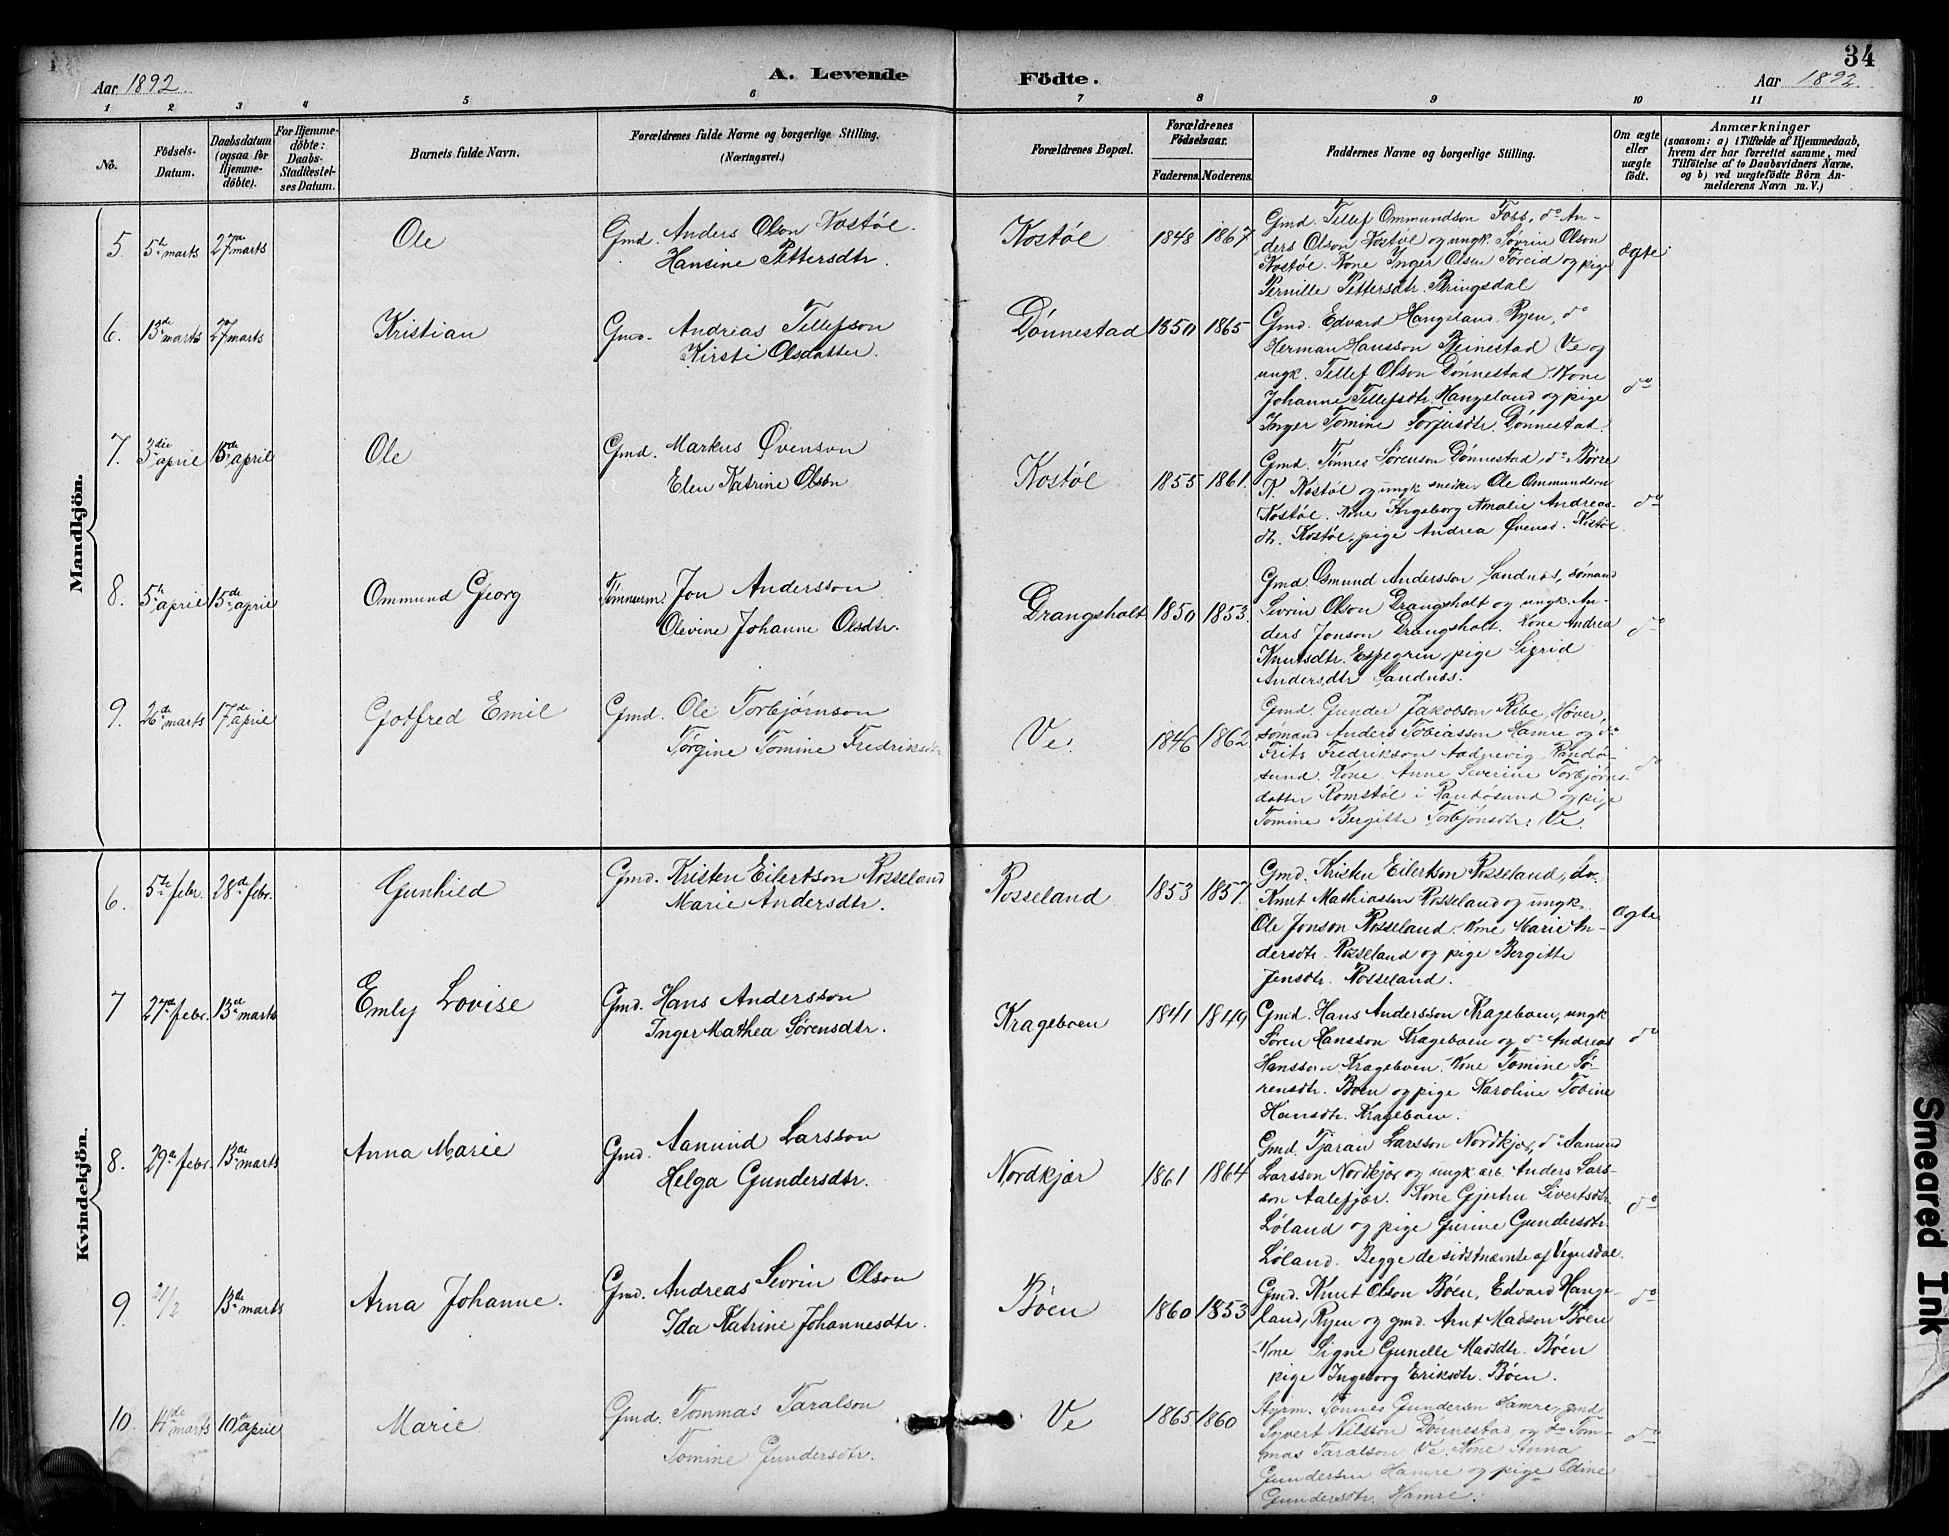 34
Aar 1892.
A. Levende
Födte.
Aar 1892.
1 2 3 4 5 6 7 8 9 10 11
No.
Födsels-Datum.
Daabsdatum (ogsaa for Hjemme-döbte).
For Hjemme-döbte: Daabs-Stadfæstel-ses Datum.
Barnets fulde Navn.
Forældrenes fulde Navne og borgerlige Stilling. (Næringsvei.)
Forældrenes Bopæl.
Forældrenes Födselsaar.
Faderens. Moderens.
Faddernes Navne og borgerlige Stilling.
Om ægte eller uægte födt.
Anmærkninger
(saasom: a) i Tilfælde af Hjemmedaab,
hvem der har forrettet samme, med
Tilföielse af to Daabsvidners Navne,
og b) ved uægtefödte Börn An-
melderens Navn m. V.)
Mandkjön.
5. 5te marts 27de marts
Ole
Gmd. Anders Olson Kostøl.
Hansine Pettersdtr.
Kostøl 1848 1867
Gmd. Tellef Ommundson Foss, do An-
ders Olson Kostøl og ungk. Søvrin Olson
Kostøl. Kone Inger Olsen Føreid og pige
Pernille Pettersdtr. Bringsdal
ægte
6. 13de marts 27 marts
Kristian
Gmd. Andreas Tellefson
Kirsti Olsdatter.
Dønnestad 1850 1865
Gmd. Edvard Hangeland Ryen, do
Herman Hansson Reinestad Ve og
ungk. Tellef Olson Dønnestad. Kone
Johanne Tellefsdtr. Hangeland og pige
Inger Tomine Torjusdtr. Dønnestad.
do
7. 3die april 15de april
Ole
Gmd. Markus Øvenson
Elen Katrine Olson
Kostøl 1855 1861.
Gmd. Tønnes Sørenson Dønnestad, do Børre
K. Kostøl og ungk snedker Ole Ommundson
Kostøl. Kone Ingeborg Amalie Andreas-
dtr. Kostøl, pige Andrea Øvensd. Kostøl.
do
8. 5te april 15de april
Ommund Georg
Tømmerm. Jon Andersson
Olevine Johanne Olsdtr.
Drangsholt 1850 1853.
Gmd. Osmund Andersson Sandnæs, sømand
Sevrin Olson Drangsholt og ungk. An-
ders Jonson Drangsholt. Kone Andrea
Knutsdtr. Espegren, pige Sigrid
Andersdtr Sandnæs.
do
9. 26de marts 17de april
Gotfred Emil
Gmd. Ole Torbjørnson
Tørgine Tomine Fredriksdtr
Ve. 1846 1862.
Gmd. Gunder Jakobson Ribe, Høver,
sømand Anders Tobiasson Hamre og do
Frits Fredrikson Randø-
sund. Kone Anne Severine Torbjørns-
datter Romstøl i Randøsund og pige
Tomine Bergitte Torbjønsdtr. Ve.
do
Kvindekjön.
6. 5te febr. 28de febr.
Gunhild
Gmd. Kristen Eilertson Rosseland
Marie Andersdtr.
Rosseland 1853 1857.
Gmd. Kristen Eilertson Rosseland, do.
Knut Mathiassen Rosseland og ungk.
Ole Jonson Rosseland. Kone Marie An-
dersdtr. Rosseland og pige Bergitte
Jensdtr. Rosseland.
ægte
7 27de febr. 13de marts
Emly Lovise
Gmd. Hans Andersson
Inger Mathea Sørensdtr.
Krageboen 1841 1849
Gmd. Hans Andersson Krageboen, ungk
Søren Hansson Krageboen og do Andreas
Hansson Krageboen. Kone Tomine Sø-
rensdtr. Boen og pige Karoline Tobine
Hansdtr. Krageboen.
do
8. 29de febr. 13de marts
Anna Marie
Gmd. Aanund Larsson
Helga Gundersdtr.
Nordkjær 1861 1864
Gmd. Tjøran Larsson Nordkjær, do Aanund
Larsson Nordkjær og ungk arb. Anders Lars-
son Aalefjær. Kone Gjertru Sivertsdtr.
Løland og pige Gurine Gundersdtr.
Løland. Begge de sidstnævnte af Vegusdal.
do
9. 21/2 13de marts
Arna Johanne.
Gmd. Andreas Sevrin Olson
Ida Katrine Johannesdtr.
Bøen 1860 1853
Gmd. Knut Olson Bøen, Edvard Hange-
land, Ryen og gmd. Arnt Madson Bøen
Kone Signe Gunelle Madsdtr. Bøen
pige Ingeborg Eriksdtr. Bøen.
do
10. 14de marts 10de april
Marie
Gmd. Tommas Taralson
Tomine Gundersdtr.
Ve 1865. 1860
Styrm. Tønnes Gundersen Hamre, gmd
Syvert Nilsson Dønnestad, og do Tom-
mas Taralson Ve. Kone Anna
Gundersen Hamre og pige Odine
Gundersdtr. Hamre.
do
Smeared Ink